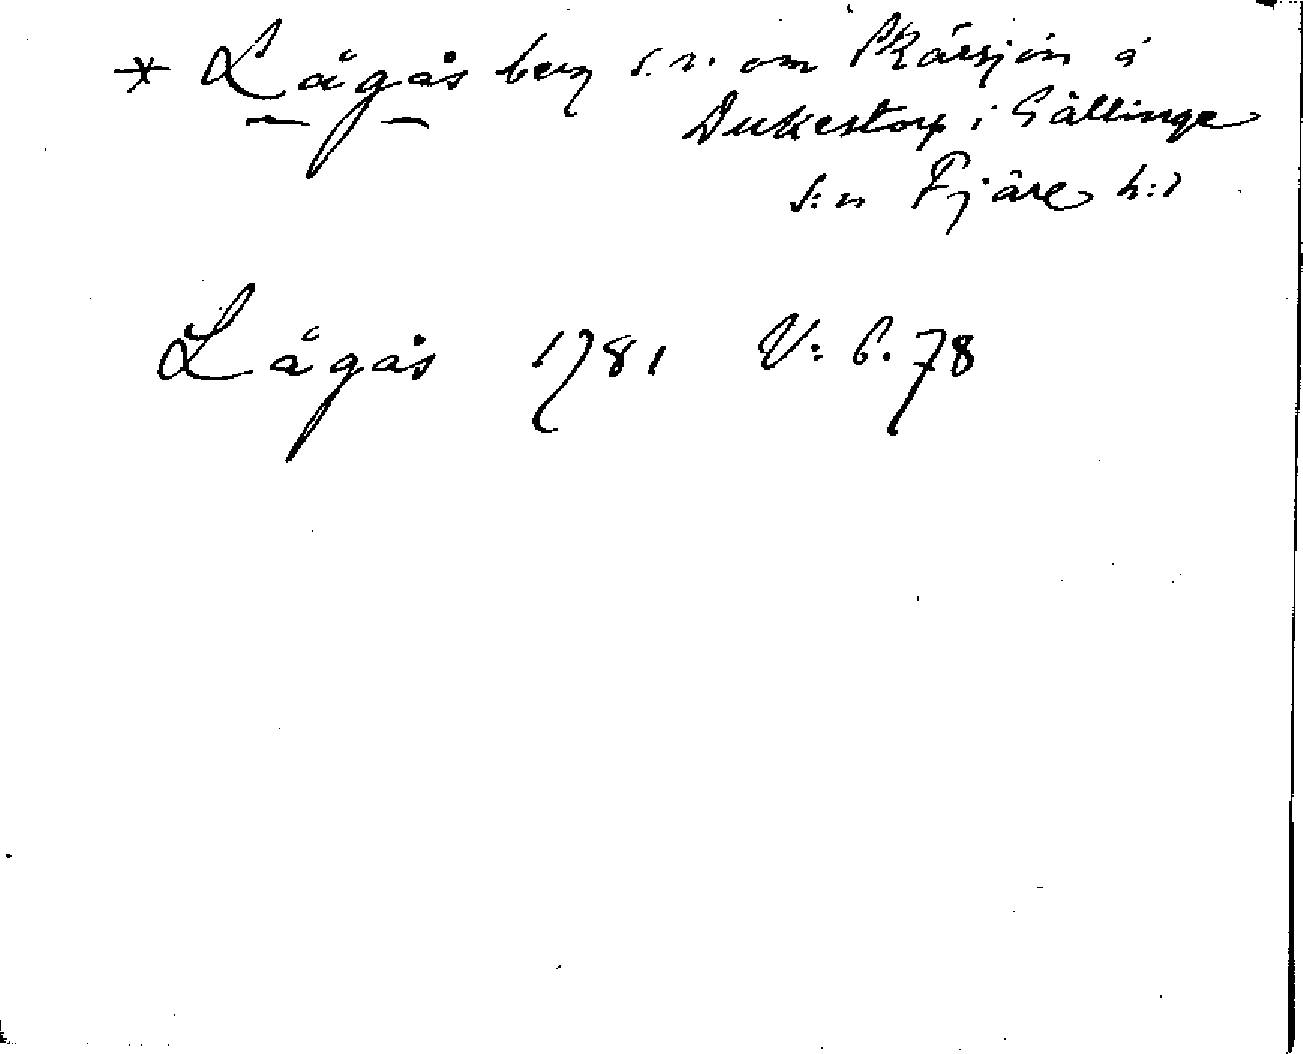 * Lågås berg s.v. om Skärsjön å
Dukestorp i Gällinge
s:n Fjäre h:d
Lågås 1781 V: 6.78